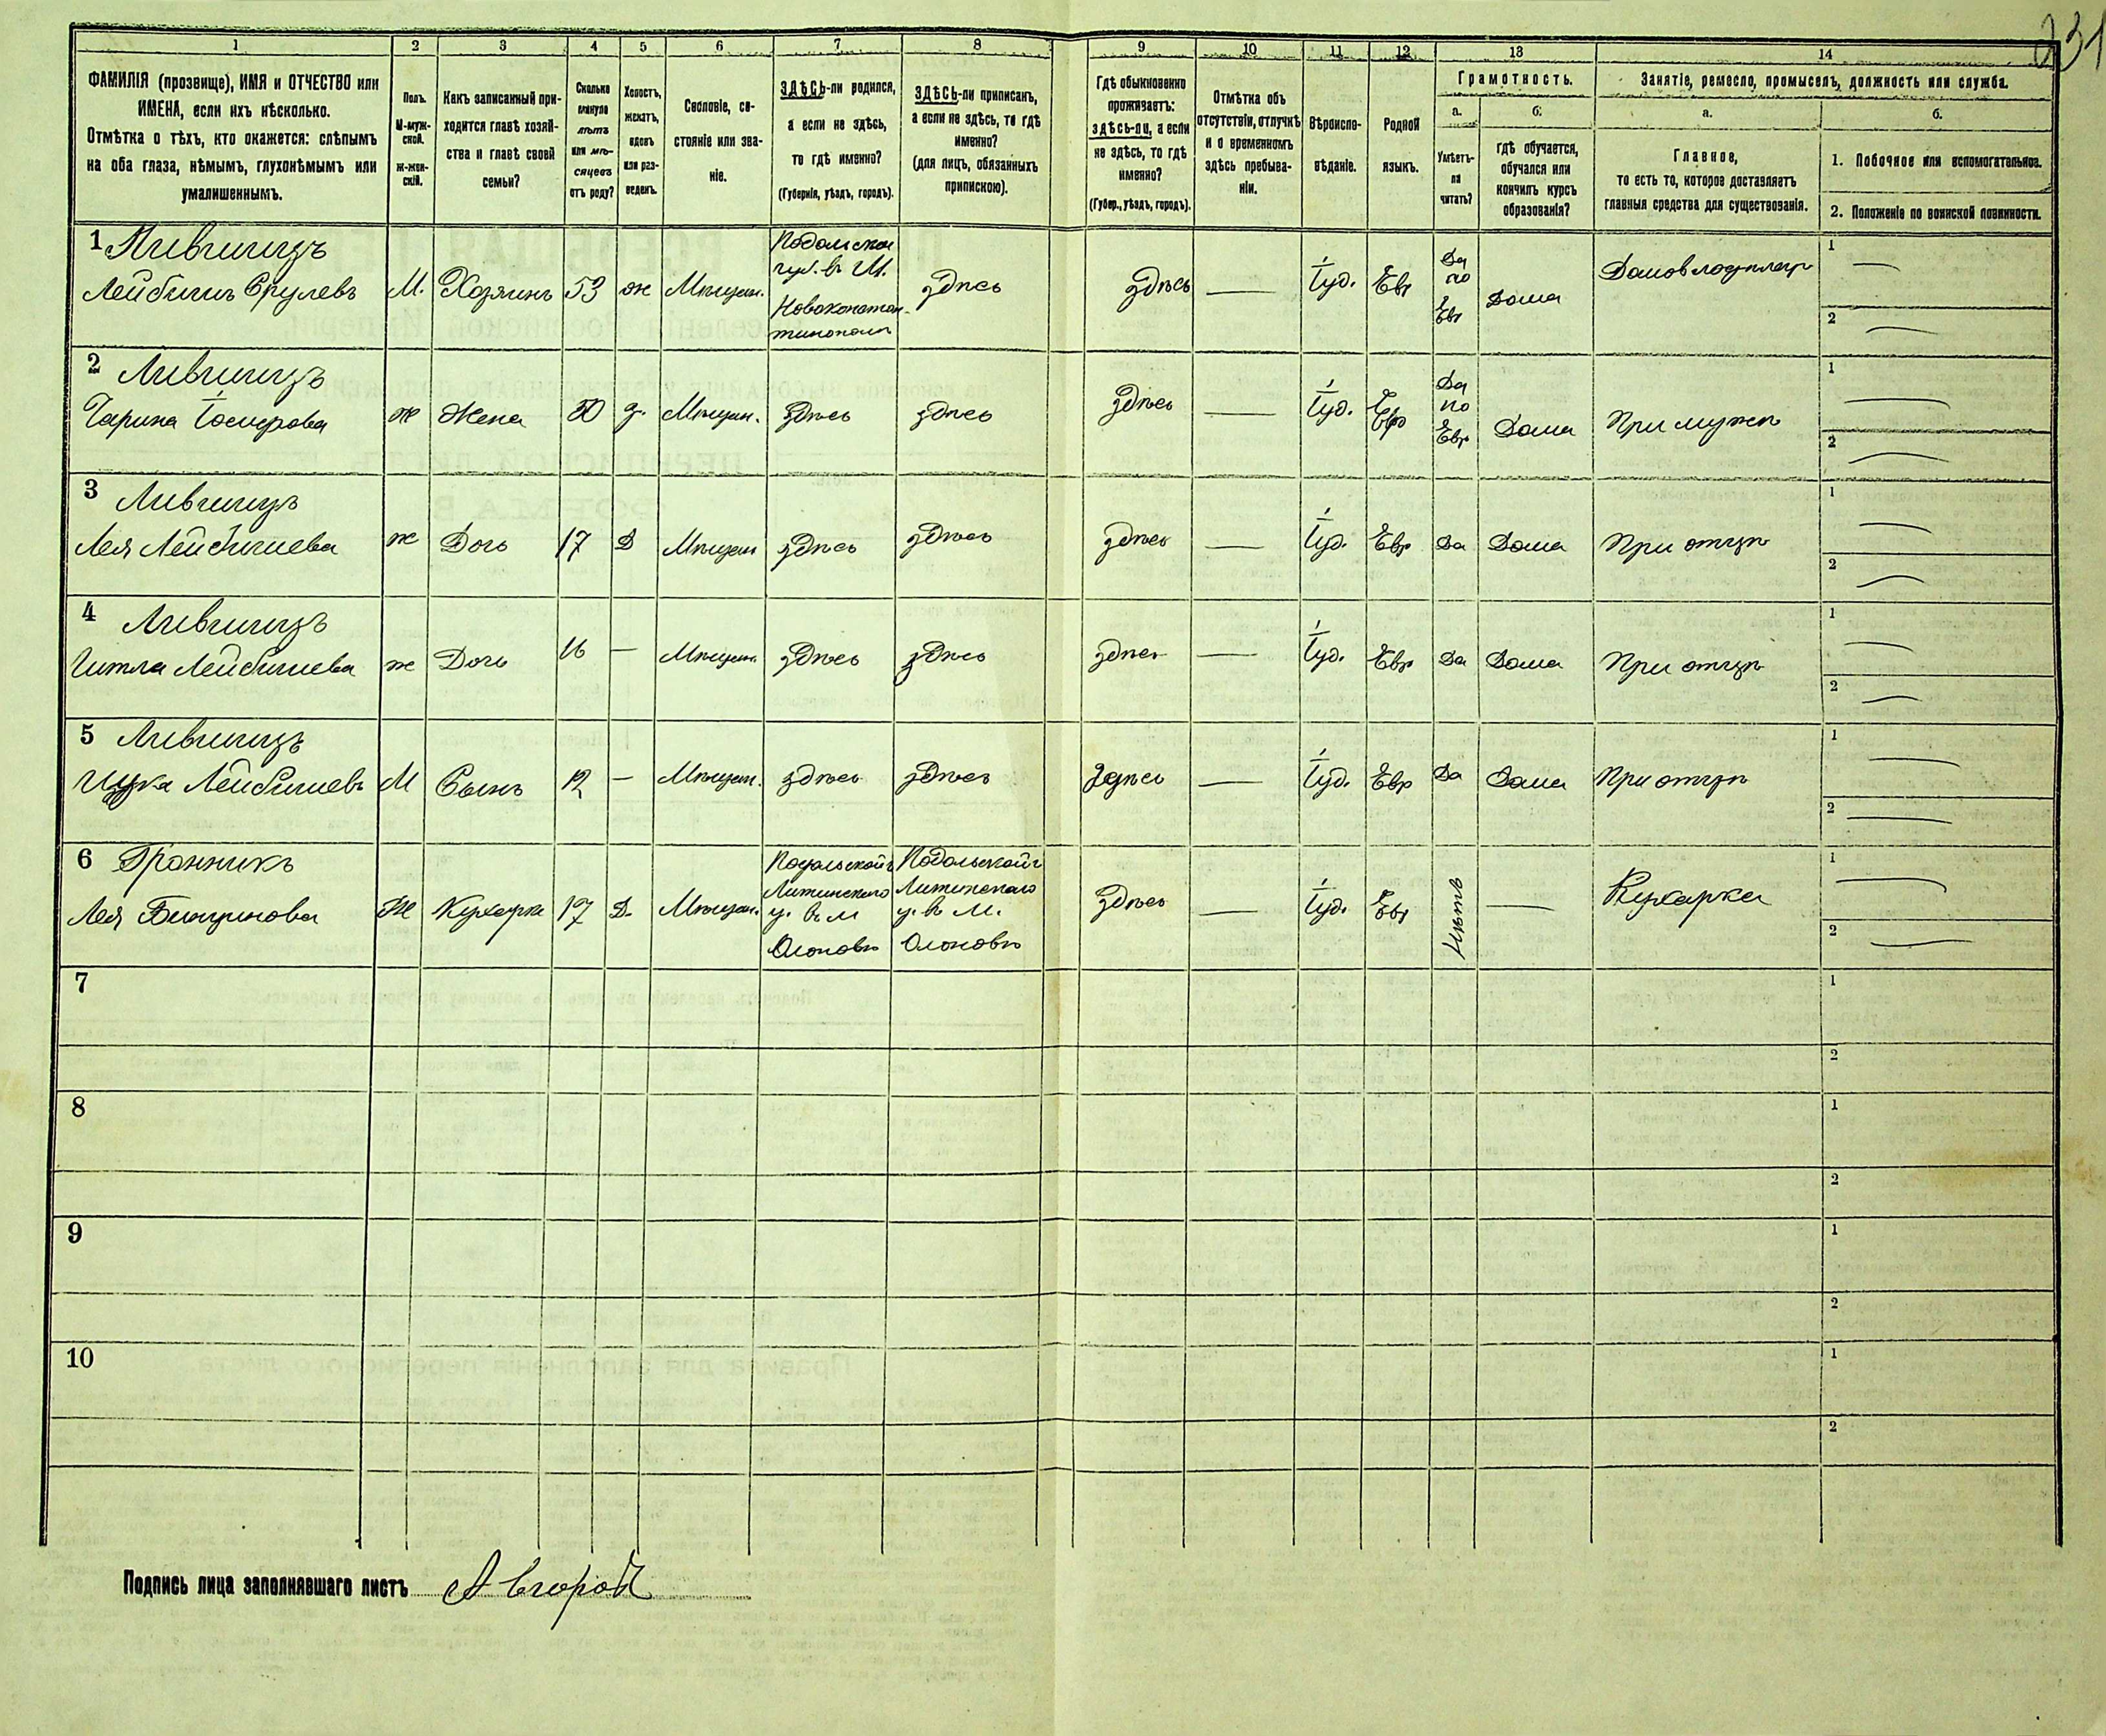 231
1 2 3 4 5 6 7 8 9 10 11 12 13 14
ФАМИЛІЯ (прозвище), ИМЯ и ОТЧЕСТВО или
ИМЕНА, если ихъ нѣсколько.
Отмѣтка о тѣхъ, кто окажется: слѣпымъ
на оба глаза, нѣмымъ, глухонѣмымъ или
умалишеннымъ.
Полъ.
М-муж-
ской.
ж-жен-
скій.
Какъ записанный при-
ходится главѣ хозяй-
ства и главѣ своей
семьи?
Сколько
минуло
лѣтъ
или мѣ-
сяцевъ
отъ роду?
Холостъ,
женатъ,
вдовъ
или раз-
веденъ.
Сословіе, со-
стояніе или зва-
ніе.
ЗДѢСЬ-ли родился,
а если не здѣсь,
то гдѣ именно?
(Губернія, уѣздъ, городъ).
ЗДѢСЬ-ли приписанъ,
а если не здѣсь, то гдѣ
именно?
(для лицъ, обязанныхъ
припискою).
Гдѣ обыкновенно
проживаетъ:
здѣсь-ли, а если
не здѣсь, то гдѣ
именно?
(Губер., уѣздъ, городъ).
Отмѣтка объ
отсутствіи, отлучкѣ
и о временномъ
здѣсь пребыва-
ніи.
Вѣроиспо-
вѣданіе.
Родной
языкъ.
Грамотность.
а.
Умѣетъ-
ли
читать?
б.
гдѣ обучается,
обучался или
кончилъ курсъ
образованія?
Занятіе, ремесло, промыселъ, должность или служба.
а.
Главное,
то есть то, которое доставляетъ
главныя средства для существованія.
б.
1. Побочное или вспомогательное.
2. Положеніе по воинской повинности.
1 Лившицъ
Лейбишъ Срулевъ М. Хозяинъ 53 ж Мѣщан.
Подольской
губ. въ М.
Новоконстан-
тинополи
здѣсь здѣсь — Іуд. Евр
Да
по
Евр
Дома
1 —
2 —
2 Лившицъ
жена 50 Мѣщан. здѣсь здѣсь здѣсь — Іуд. Евр
Да
по
Евр
Дома При мужѣ
1 —
2 —
3 Лившицъ
Лея Лейбишева ж Дочь 17 Д Мѣщан здѣсь здѣсь здѣсь — Іуд. Евр Да Дома При отцѣ
1 —
2 —
4 Лившицъ
Гитля Лейбишева ж Дочь 16 — Мѣщан. здѣсь здѣсь здѣсь — Іуд. Евр Да Дома При отцѣ
1 —
2 —
5 Лившицъ
Лейбишевъ М Сынъ 12 — Мѣщан. здѣсь здѣсь здѣсь — Іуд. Евр Да Дома При отцѣ
1 —
2 —
6 Гранникъ
Лея Ж Кухарка 17 Д. Мѣщан.
Подольской г
Литинского
у. въ М
Подольской г
Литинского
у. въ М.
здѣсь — Іуд. Евр Нѣтъ — Кухарка
1 —
2 —
7
1
2
8
1
2
9
1
2
10
1
2
Подпись лица заполнявшаго листъ